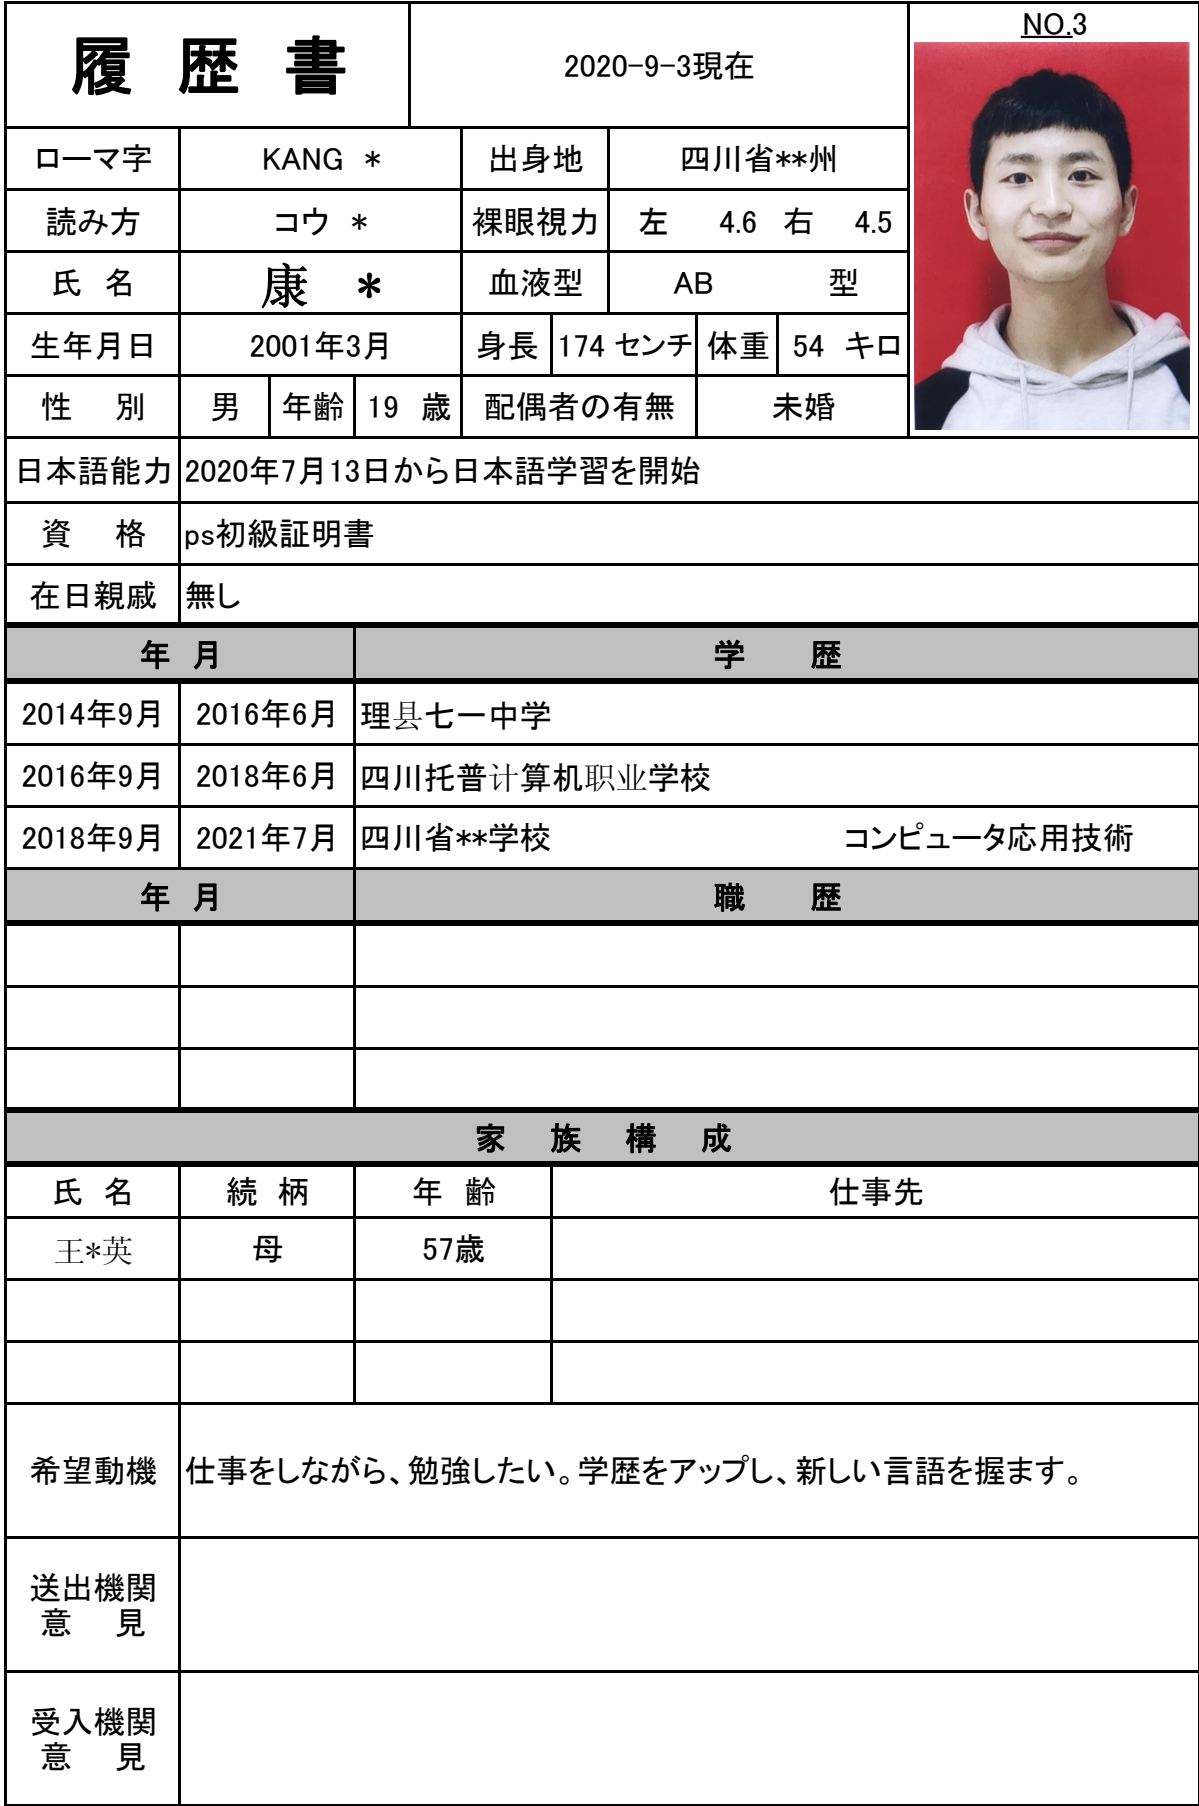 履 歴 書
2020-9-3現在
NO.3
ローマ字 KANG * 出身地 四川省**州
読み方 コウ * 裸眼視力 左 4.6 右 4.5
氏 名 康 * 血液型 AB 型
生年月日 2001年3月 身長 174 センチ 体重 54 キロ
性 別 男 年齢 19 歳 配偶者の有無 未婚
日本語能力 2020年7月13日から日本語学習を開始
資 格 ps初級証明書
在日親戚 無し
年 月 学 歴
2014年9月 2016年6月 理县七一中学
2016年9月 2018年6月 四川托普计算机职业学校
2018年9月 2021年7月 四川省**学校 コンピュータ応用技術
年 月 職 歴
家 族 構 成
氏 名 続 柄 年 齢 仕事先
王*英 母 57歳
希望動機 仕事をしながら、勉強したい。学歴をアップし、新しい言語を握ます。
送出機関
意 見
受入機関
意 見